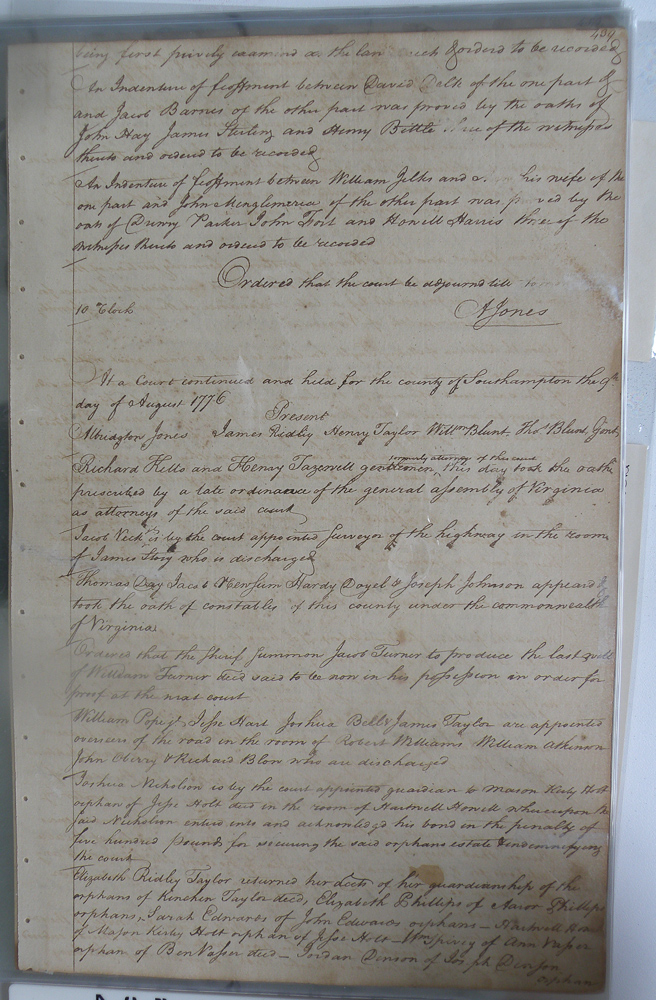 being first privily examind as the law ordered to be recorded
An Indenture of feoffment between David of the one part &
and Jacob Barnes of the other part was proved by the oaths of
John Hay James Sterling and Henry Bittle of the witnesses
thereto and ordered to be recorded
An Indenture of feoffment between William Jelks and his wife of the
one part and John of the other part was by the
oath of Drury Parker John Fort and Howell Harris three of the
witnesses thereto and ordered to be recorded
Ordered that the court be adjournd till
10 Clock
AJones
At a Court continued and held for the county of Southampton the 9th
day of August 1776
Present
Albridgton Jones James Ridley Henry Taylor Willm Blunt Thos Blunt, Gent
Richard Kello and Henry Tazewell gentlemen, formerly attorneys of this court this day took the oath
prescribed by a late ordinance of the general assembly of Virginia
as attorneys of the said court
Jacob is by the court appointed surveyor of the highway in the room
of James Story who is discharged
Thomas Day Jacob Hardy Doyel & Joseph Johnson appeard &
took the oath of constables of this county under the commonwealth
of Virginia
Ordered that the sherif summon Jacob Turner to produce the last will
of William Turner decd said to be now in his possession in order for
proof at the next court
William Pope jr Jesse Hart Joshua Bell & James Taylor are appointed
overseers of the road in the room of Robert Williams William Atkinson
John Oberry & Richard Blow who are discharged
Joshua Nicholson is by the court appointed guardian to Mason Kerby Holt
orphan of Jesse Holt decd in the room of Hartwell Howell whereupon the
said Nicholson entered into and acknowledged his bond in the penalty of
five hundred Pounds for securing the said orphans estate & indemnifying
the court
Elizabeth Ridley Taylor returned her accts of her guardianship of the
orphans of Kinchen Taylor decd, Elizabeth Phillips of Phillips
orphans, Sarah Edwards of John Edwards orphans — Hartwell
of Mason Kerby Holt orphan of Jesse Holt — Wm Spivey of Ann Vasser
orphan of Ben Vasser decd — Jordan Denson of Joseph Denson
orphan